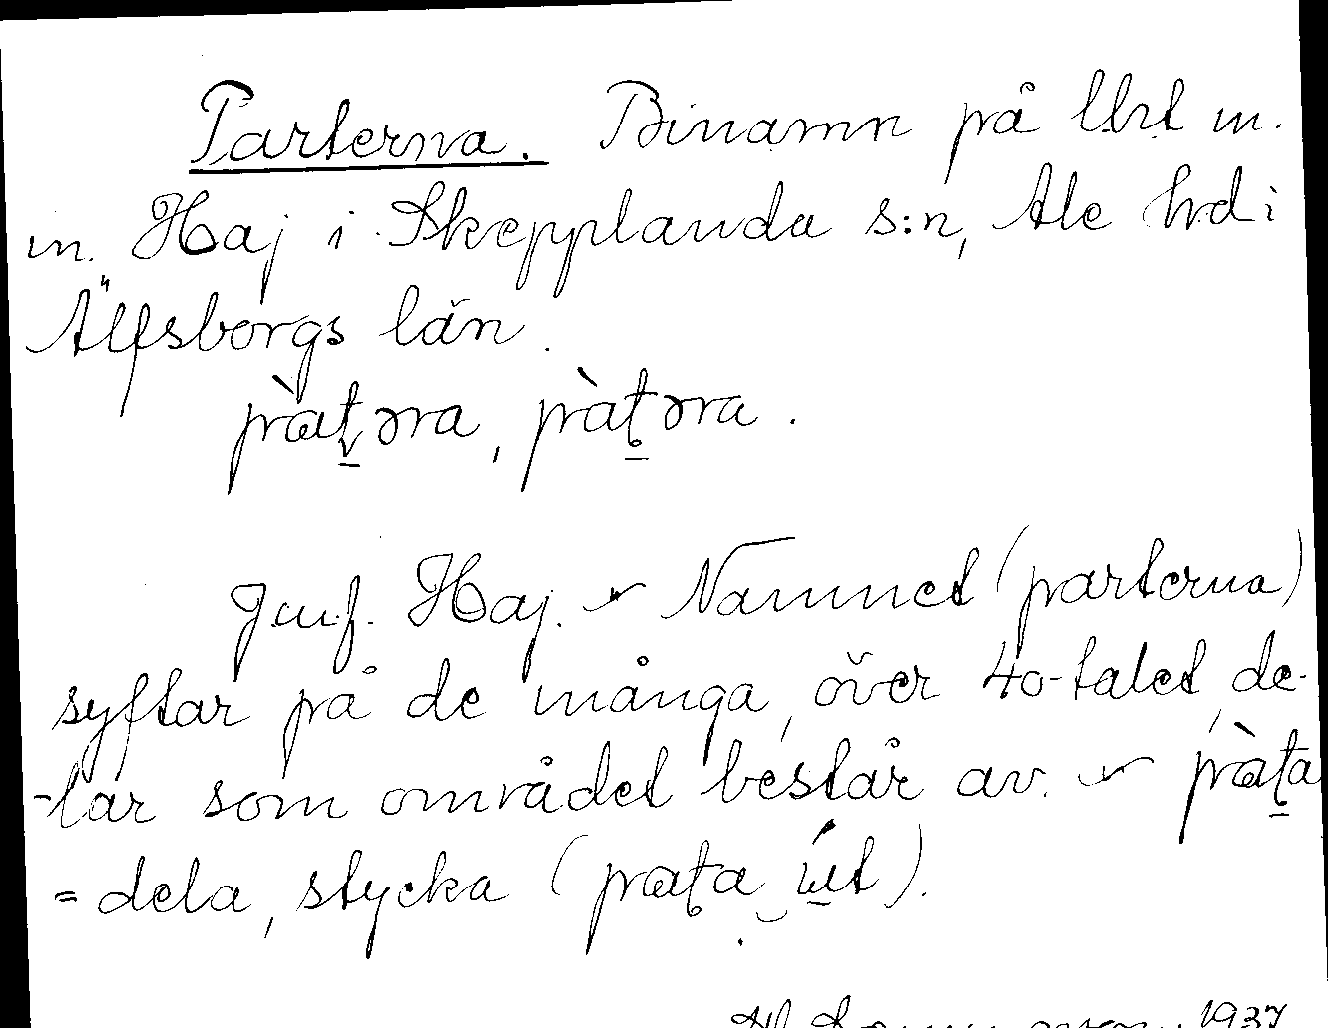 Parterna. Binamn på Utst m.
m. Haj i Skepplanda s:n, Ale hrd i
Älfsborgs län.
pàʈərra, pàʈərra.
Jmf. Haj. Namnet (parterna)
syftar på de många, över 40-talet, de-
-lar som området består av. pàʈa
= dela, stycka (paʈa út).
1937